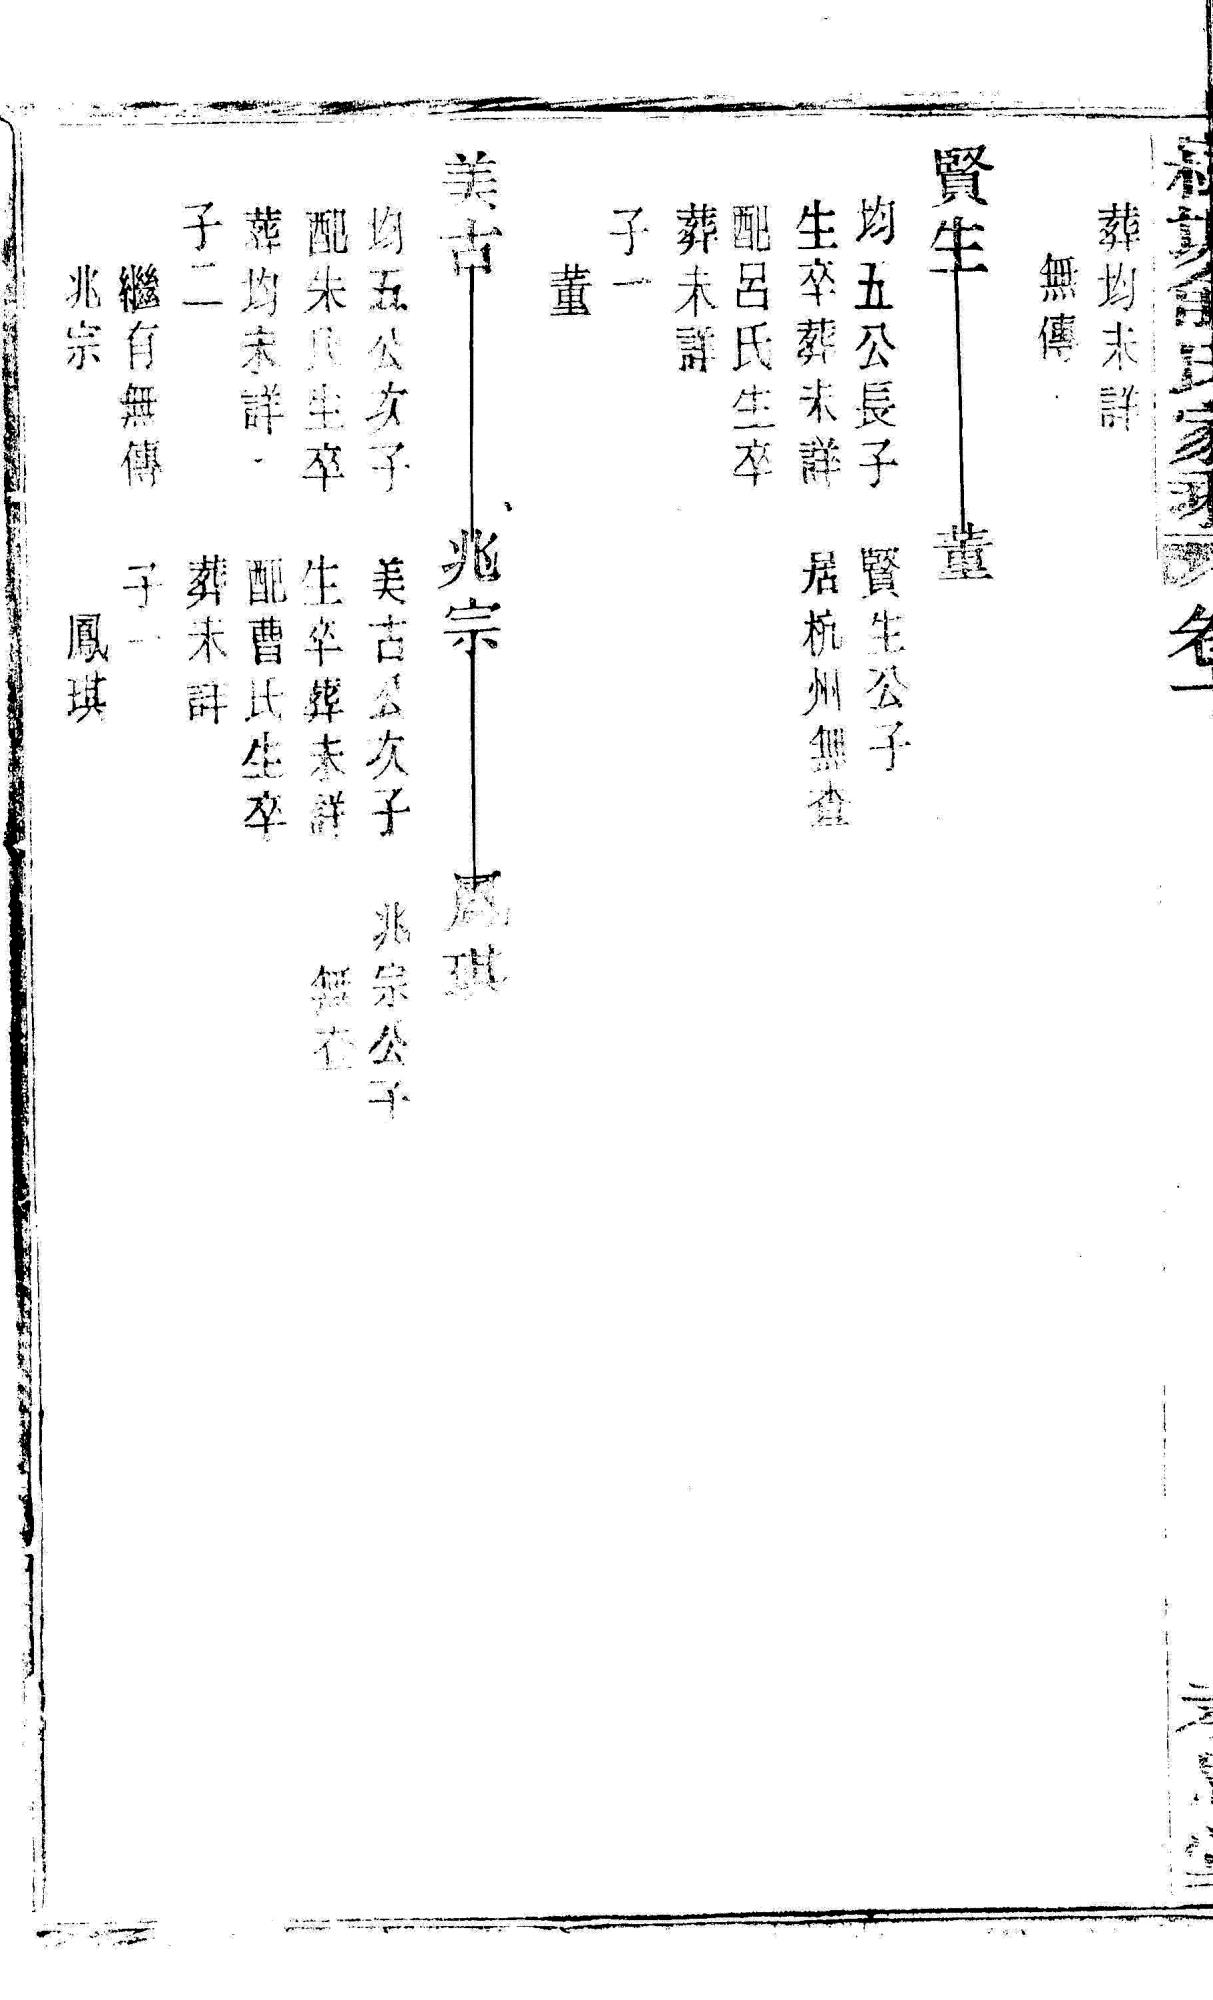 氏家乘 卷十
葬均未詳
無傳
賢生 董
均五公長子 賢生公子
生卒葬未詳 居杭州無查
配呂氏生卒
葬未詳
子一
董
美古 兆宗 鳳琪
均五公次子 美古公次子 兆宗公子
配朱氏生卒 生卒葬未詳 無在
葬均未詳 配曹氏生卒
子二 葬未詳
繼有無傳 子一
兆宗 鳳琪